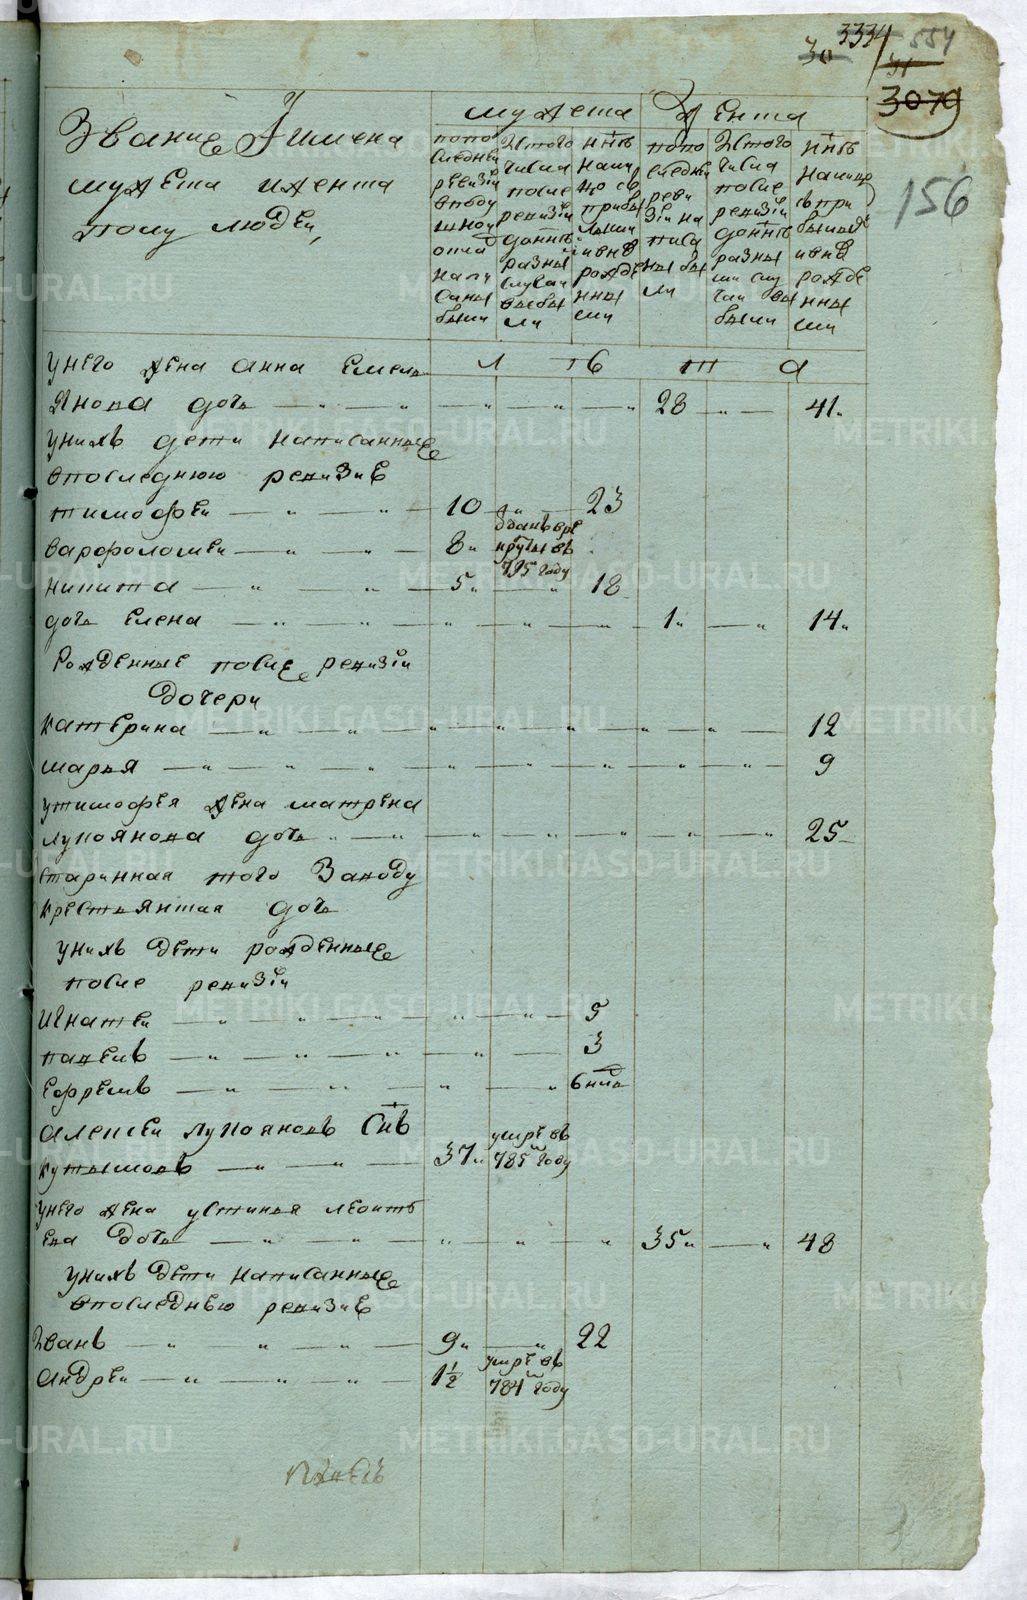 30 3334 554
31
3079
156
Звание Уимена
мужеска иженска
полу людеи,
мужеска
Женска
попо
следнеи
ревизіи
вподу
шнои
оклад
напи
саны
были
Изтого
числа
после
ревизіи
разны
случаи
выбы
ли
ннѣ
нали
цо съ
прибы
лыми
ивнѡ
рожде
нны
ми
попо
следнеи
реви
зіи на
писа
ны бы
ли
Изтого
числа
после
ревизіи
разны
ми слу
чаи вы
были
ннѣ
налицо
съ при
былыми
ивнѡ
рожде
нны
ми
унего жена анна емель
л ѣ т а
янова дочь 28 41
унихъ дети написанные
впоследнюю ревизию
тимофеи 10 23
варфоломеи 8 отданъ врекруты въ 795 году
никита 5 18
дочь елена 1 14
рожденные после ревизіи
дочери
катерина 12
марья 9
утимофея жена матрена
лупоянова дочь 25
старинная того Заводу
крестьянская дочь
унихъ дети рожденные
после ревизіи
Игнатеи 5
павелъ 3
ефремъ 6 нид
алексеи лупояновъ Снъ
кутымовъ 37 умре въ 785 году
унего жена устинья леонть
ева дочь 35 48
унихъ дети написанные
впоследнюю ревизию
Іванъ 9 22
андреи 1½ умре въ 784 году